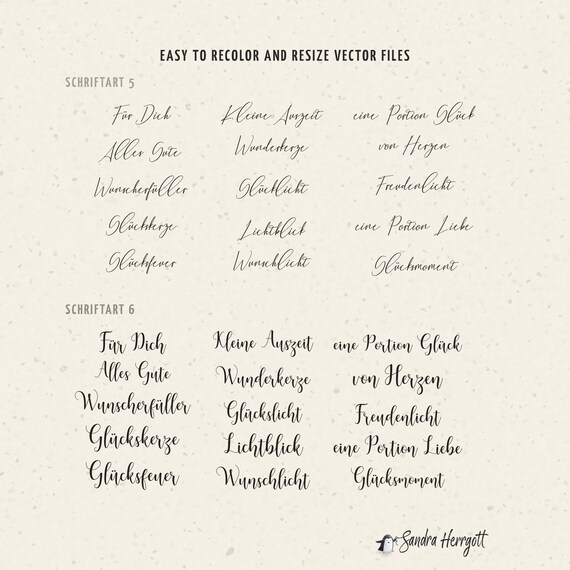 EASY TO RECOLOR AND RESIZE VECTOR FILES
SCHRIFTART 5
Für Dich Kleine Auszeit eine Portion Glück
Alles Gute Wunderkerze von Herzen
Wunscherfüller Glückslicht Freudenlicht
Glückskerze Lichtblick eine Portion Liebe
Glücksfeuer Wunschlicht Glücksmoment
SCHRIFTART 6
Für Dich Kleine Auszeit eine Portion Glück
Alles Gute Wunderkerze von Herzen
Wunscherfüller Glückslicht Freudenlicht
Glückskerze Lichtblick eine Portion Liebe
Glücksfeuer Wunschlicht Glücksmoment
Sandra Herrgott